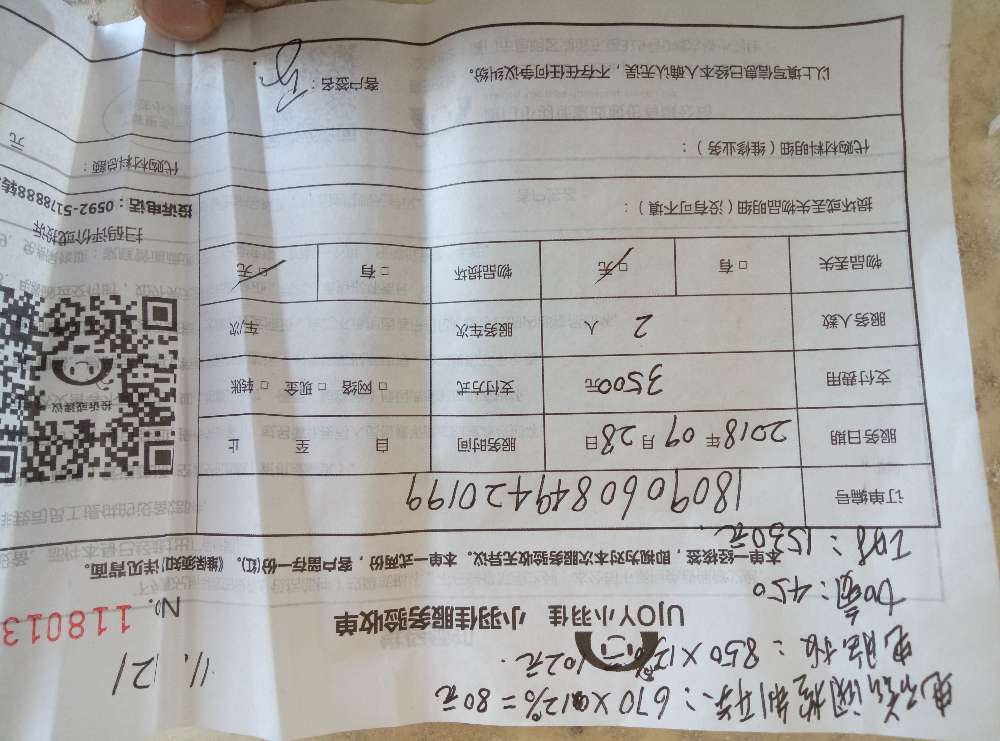 控制开关：670×12%=80元
电脑板：850×12%=102元.
11.121
UJOY小羽佳 小羽佳服务验收单
No. 118013
加氟：450
本单一经核签，即视为对本次服务验收无异议。本单一式两份，客户留存一份(红)。《维保须知》详见背面。
工时：1530元.
订单编号 1809060849420199
服务日期 2018年09月28日 服务时间 自 至 止
支付费用 3500元 支付方式 □网络 □现金 □转账
服务人数 2 人 服务车次 车次
物品丢失 □有 □无 物品损坏 □有 □无
投诉或建议
扫码评价或投诉
投诉电话：0592-5178888转
损坏或丢失物品明细（没有可不填）：
代购材料明细（维修业务）：
代购材料总额： 元
以上填写信息已经本人确认无误，不存在任何争议纠纷。 客户签名：